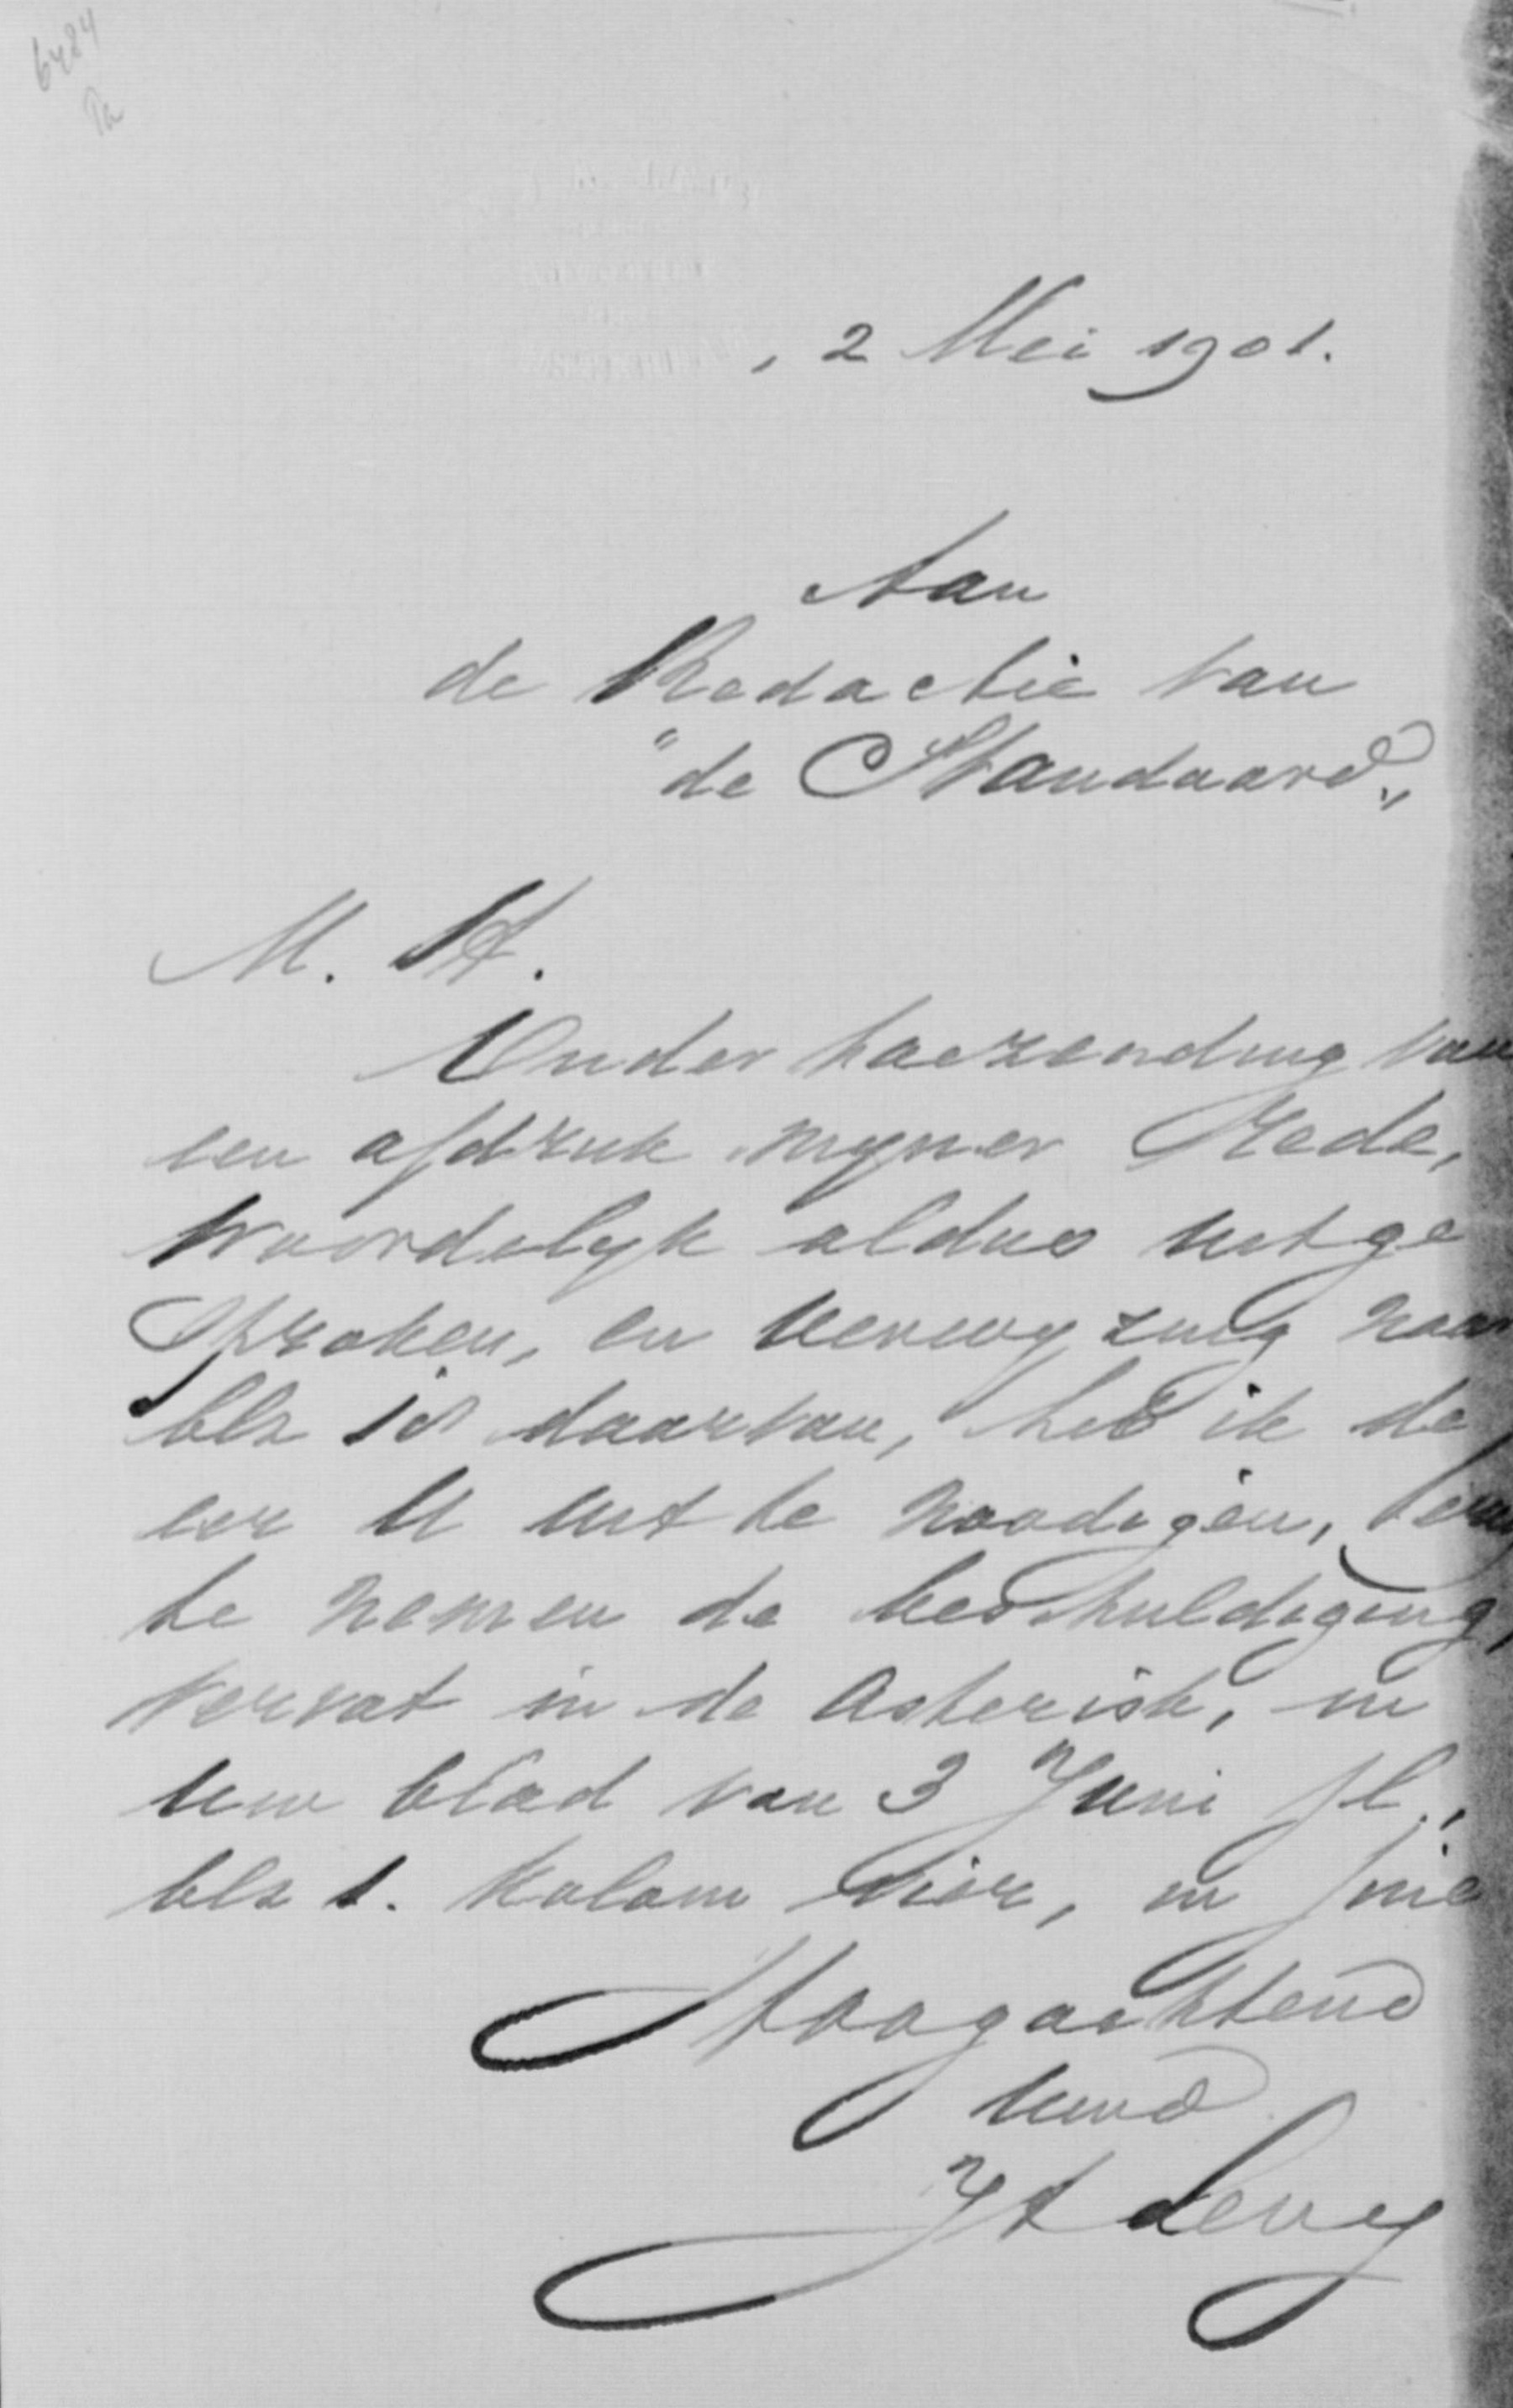 6484
, 2 Mei 1901.
Aan
de Redactie van
"de Standaard„
M. H.
Onder toezending van
een afdruk mijner Rede,
woordelijk aldus uitge
sproken, en verwijzing naar
blz daarvan, heb ik de
eer U uit te noodigen, terug
te nemen de beschuldiging,
vervat in de Asterisk, in
uw blad van 3 Juni jl.,
blz 1. kolom vier, in fine
Hoogachtend
Uwd
J A Levy